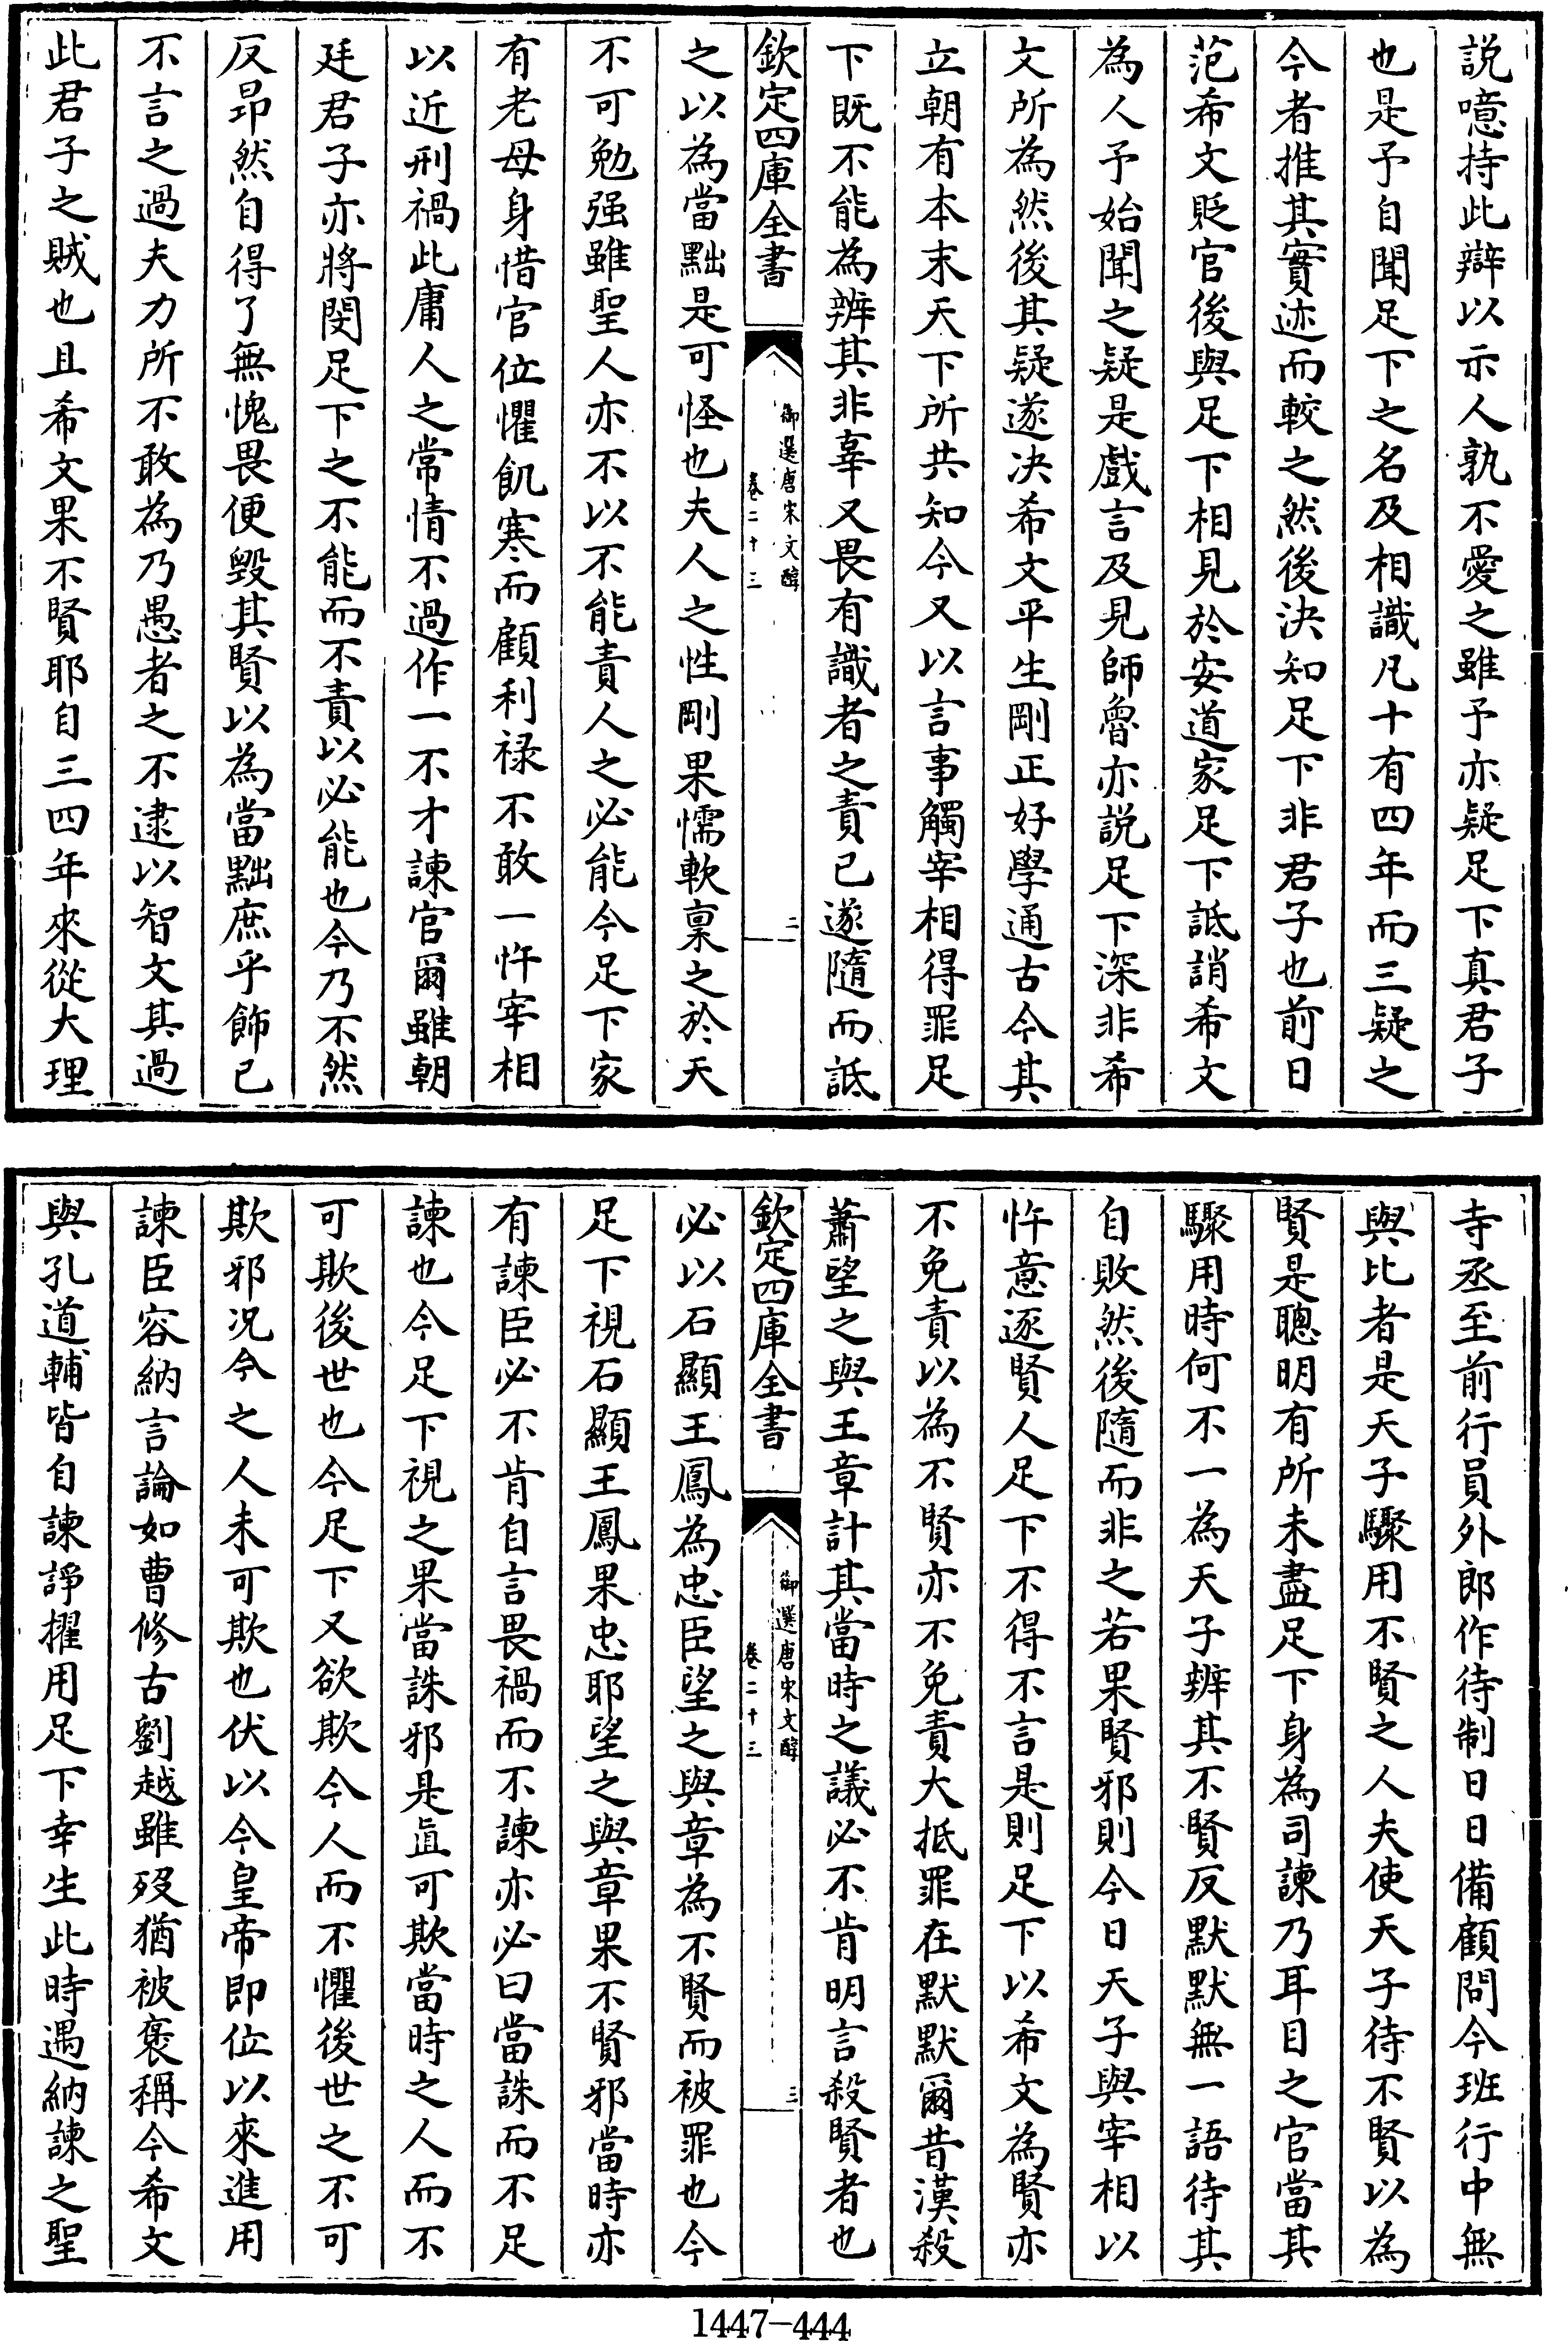 説噫持此辯以示人孰不愛之雖予亦疑足下真君子
也是予自聞足下之名及相識凡十有四年而三疑之
今者推其實迹而較之然後決知足下非君子也前日
范希文貶官後與足下相見於安道家足下詆誚希文
為人予始聞之疑是戲言及見師魯亦説足下深非希
文所為然後其疑遂决希文平生剛正好學通古今其
立朝有本末天下所共知今又以言事觸宰相得罪足
下既不能為辨其非辜又畏有識者之責已遂隨而詆
欽定四庫全書
御選唐宋文醇
卷二十三
二
之以為當黜是可怪也夫人之性剛果懦軟稟之於天
不可勉强雖聖人亦不以不能責人之必能今足下家
有老母身惜官位懼飢寒而顧利禄不敢一忤宰相
以近刑禍此庸人之常情不過作一不才諫官爾雖朝
廷君子亦將閔足下之不能而不責以必能也今乃不然
反昂然自得了無愧畏便毀其賢以為當黜庶乎飾已
不言之過夫力所不敢為乃愚者之不逮以智文其過
此君子之賊也且希文果不賢耶自三四年來從大理
寺丞至前行員外郎作待制日日備顧問今班行中無
與比者是天子驟用不賢之人夫使天子待不賢以為
賢是聰明有所未盡足下身為司諫乃耳目之官當其
驟用時何不一為天子辨其不賢反默默無一語待其
自敗然後隨而非之若果賢邪則今日天子與宰相以
忤意逐賢人足下不得不言是則足下以希文為賢亦
不免責以為不賢亦不免責大抵罪在默默爾昔漢殺
蕭望之與王章計其當時之議必不肯明言殺賢者也
欽定四庫全書
御選唐宋文醇
卷二十三
三
必以石顯王鳳為忠臣望之與章為不賢而被罪也今
足下視石顯王鳳果忠耶望之與章果不賢邪當時亦
有諫臣必不肯自言畏禍而不諫亦必曰當誅而不足
諫也今足下視之果當誅邪是直可欺當時之人而不
可欺後世也今足下又欲欺今人而不懼後世之不可
欺邪况今之人未可欺也伏以今皇帝即位以來進用
諫臣容納言論如曹修古劉越雖歿猶被褒稱今希文
與孔道輔皆自諫諍擢用足下幸生此時遇納諫之聖
1447-444